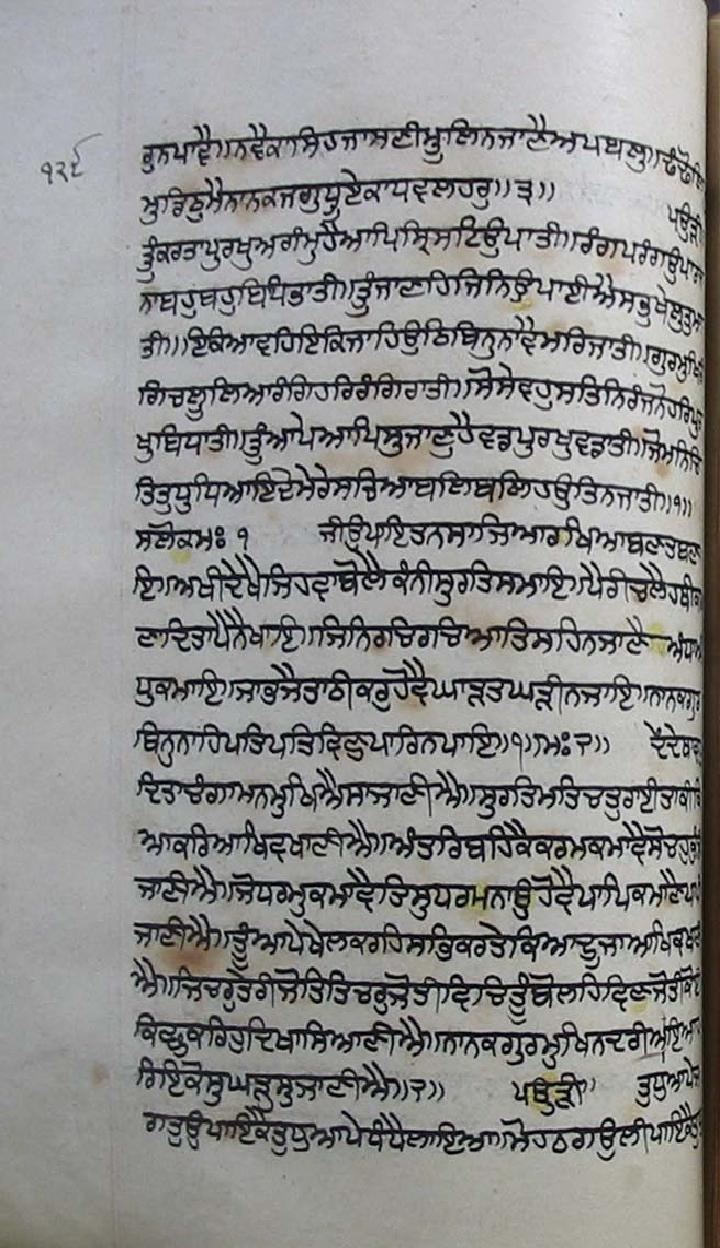 ੧੨੬
ਗੁਨਪਾਵੈ॥ਨਵੈਕਾਸਿਹਜਾਸਣੀਮੁਲਿਨਜਾਣੈਅਪਬਲੁ॥ਢੰਢੋਲਿ
ਮੁਰਿਠੁਮੈਨਾਨਕਜਗੁਧੂਏਕਾਧਵਲਹਰੁ॥੩॥ ਪਉੜੀ
ਤੂੰਕਰਤਾਪੁਰਖੁਅਗੰਮੁਹੈਆਪਿਸ੍ਰਿਸਟਿਉਪਾਤੀ॥ਰੰਗਪਰੰਗਉਪਾਰਜ
ਨਾਬਹੁਬਹੁਬਿਧਿਭਾਤੀ॥ਤੂੰਜਾਣਹਿਜਿਨਿਉਪਾਈਐਸਭੁਖੇਲੁਤੁਮਾ
ਤੀ॥ਇਕਿਆਵਹਿਇਕਿਜਾਹਿਉਠਿਬਿਨੁਨਾਵੈਮਰਿਜਾਤੀ॥ਗੁਰਮੁਖਿਰੰ
ਗਿਚਲੂਲਿਆਰੰਗਿਹਰਿਰੰਗਿਰਾਤੀ॥ਸੋਸੇਵਹੁਸਤਿਨਿਰੰਜਨੋਹਰਿਪੁਰ
ਖੁਬਿਧਾਤੀ॥ਤੂੰਆਪੇਆਪਿਸੁਜਾਣੁਹੈਵਡਪੁਰਖੁਵਡਾਤੀ॥ਜੋਮਨਿਚਿ
ਤਿਤੁਧੁਧਿਆਇਦੇਮੇਰੇਸਚਿਆਬਲਿਬਲਿਹਉਤਿਨਜਾਤੀ॥੧॥
ਸਲੋਕਮਃ ੧ ਜੀਉਪਾਇਤਨਸਾਜਿਆਰਖਿਆਬਣਤਬਣਾ
ਇ॥ਅਖੀਦੇਖੈਜਿਹਵਾਬੋਲੈਕੰਨੀਸੁਰਤਿਸਮਾਇ॥ਪੈਰੀਚਲੈਹਥੀਕਰ
ਣਾਦਿਤਾਪੈਨੈਖਾਇ॥ਜਿਨਿਰਚਿਰਚਿਆਤਿਸਹਿਨਜਾਣੈ ਅੰਧਾਅੰ
ਧੁਕਮਾਇ॥ਜਾਭਜੈਤਾਠੀਕਰੁਹੋਵੈਘਾੜਤਘੜੀਨਜਾਇ॥ਨਾਨਕਗੁਰ
ਬਿਨੁਨਾਹਿਪਤਿਪਤਿਵਿਣੁਪਾਰਿਨਪਾਇ॥੧॥ਮਃ੨॥ ਦੇਂਦੇਥਾਵਹੁ
ਦਿਤਾਚੰਗਾਮਨਮੁਖਿਐਸਾਜਾਣੀਐ॥ਸੁਰਤਿਮਤਿਚਤੁਰਾਈਤਾਕੀਕਿ
ਆਕਰਿਆਖਿਵਖਾਣੀਐ॥ਅੰਤਰਿਬਹਿਕੈਕਰਮਕਮਾਵੈਸੋਚਹੁਕੁੰਡੀ
ਜਾਣੀਐ॥ਜੋਧਰਮੁਕਮਾਵੈਤਿਸੁਧਰਮਨਾਉਹੋਵੈਪਾਪਿਕਮਾਣੈਪਾਪੀ
ਜਾਣੀਐ॥ਤੂੰਆਪੇਖੇਲਕਰਹਿਸਭਿਕਰਤੇਕਿਆਦੂਜਾਆਖਿਵਖਾਣੀ
ਐ॥ਜਿਚਰੁਤੇਰੀਜੋਤਿਤਿਚਰੁਜੋਤੀਵਿਚਿਤੂੰਬੋਲਹਿਵਿਣਜੋਤੀਕੋਈ
ਕਿਛੁਕਰਿਹੁਦਿਖਾਸਿਆਣੀਐ॥ਨਾਨਕਗੁਰਮੁਖਿਨਦਰੀਆਇਆਹ
ਰਿਇਕੋਸੁਘੜੁਸੁਜਾਣੀਐ॥੨॥ ਪਉੜੀ॥ ਤੁਧੁਆਪੇਜ
ਗਤੁਉਪਾਇਕੈਤੁਧੁਆਪੇਧੰਧੈਲਾਇਆ॥ਮੋਹਠਗਉਲੀਪਾਇਕੈਤੁਧੁ